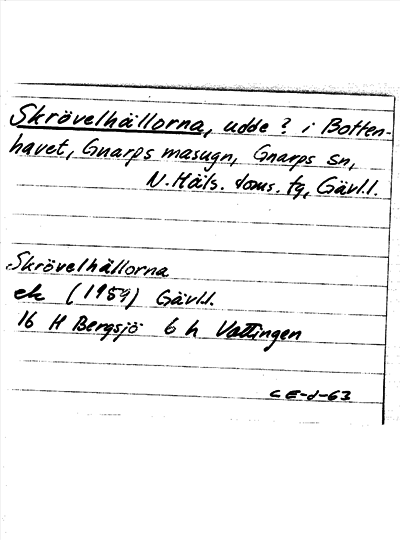 Skrövelhällorna, udde? i Botten-
havet, Gnarps masugn, Gnarps sn,
N. Häls. doms. tg, Gävl.l.
Skrövelhällorna
ek (1959) Gävl.l.
16 H Bergsjö 6 h Vattingen
CE-d-63